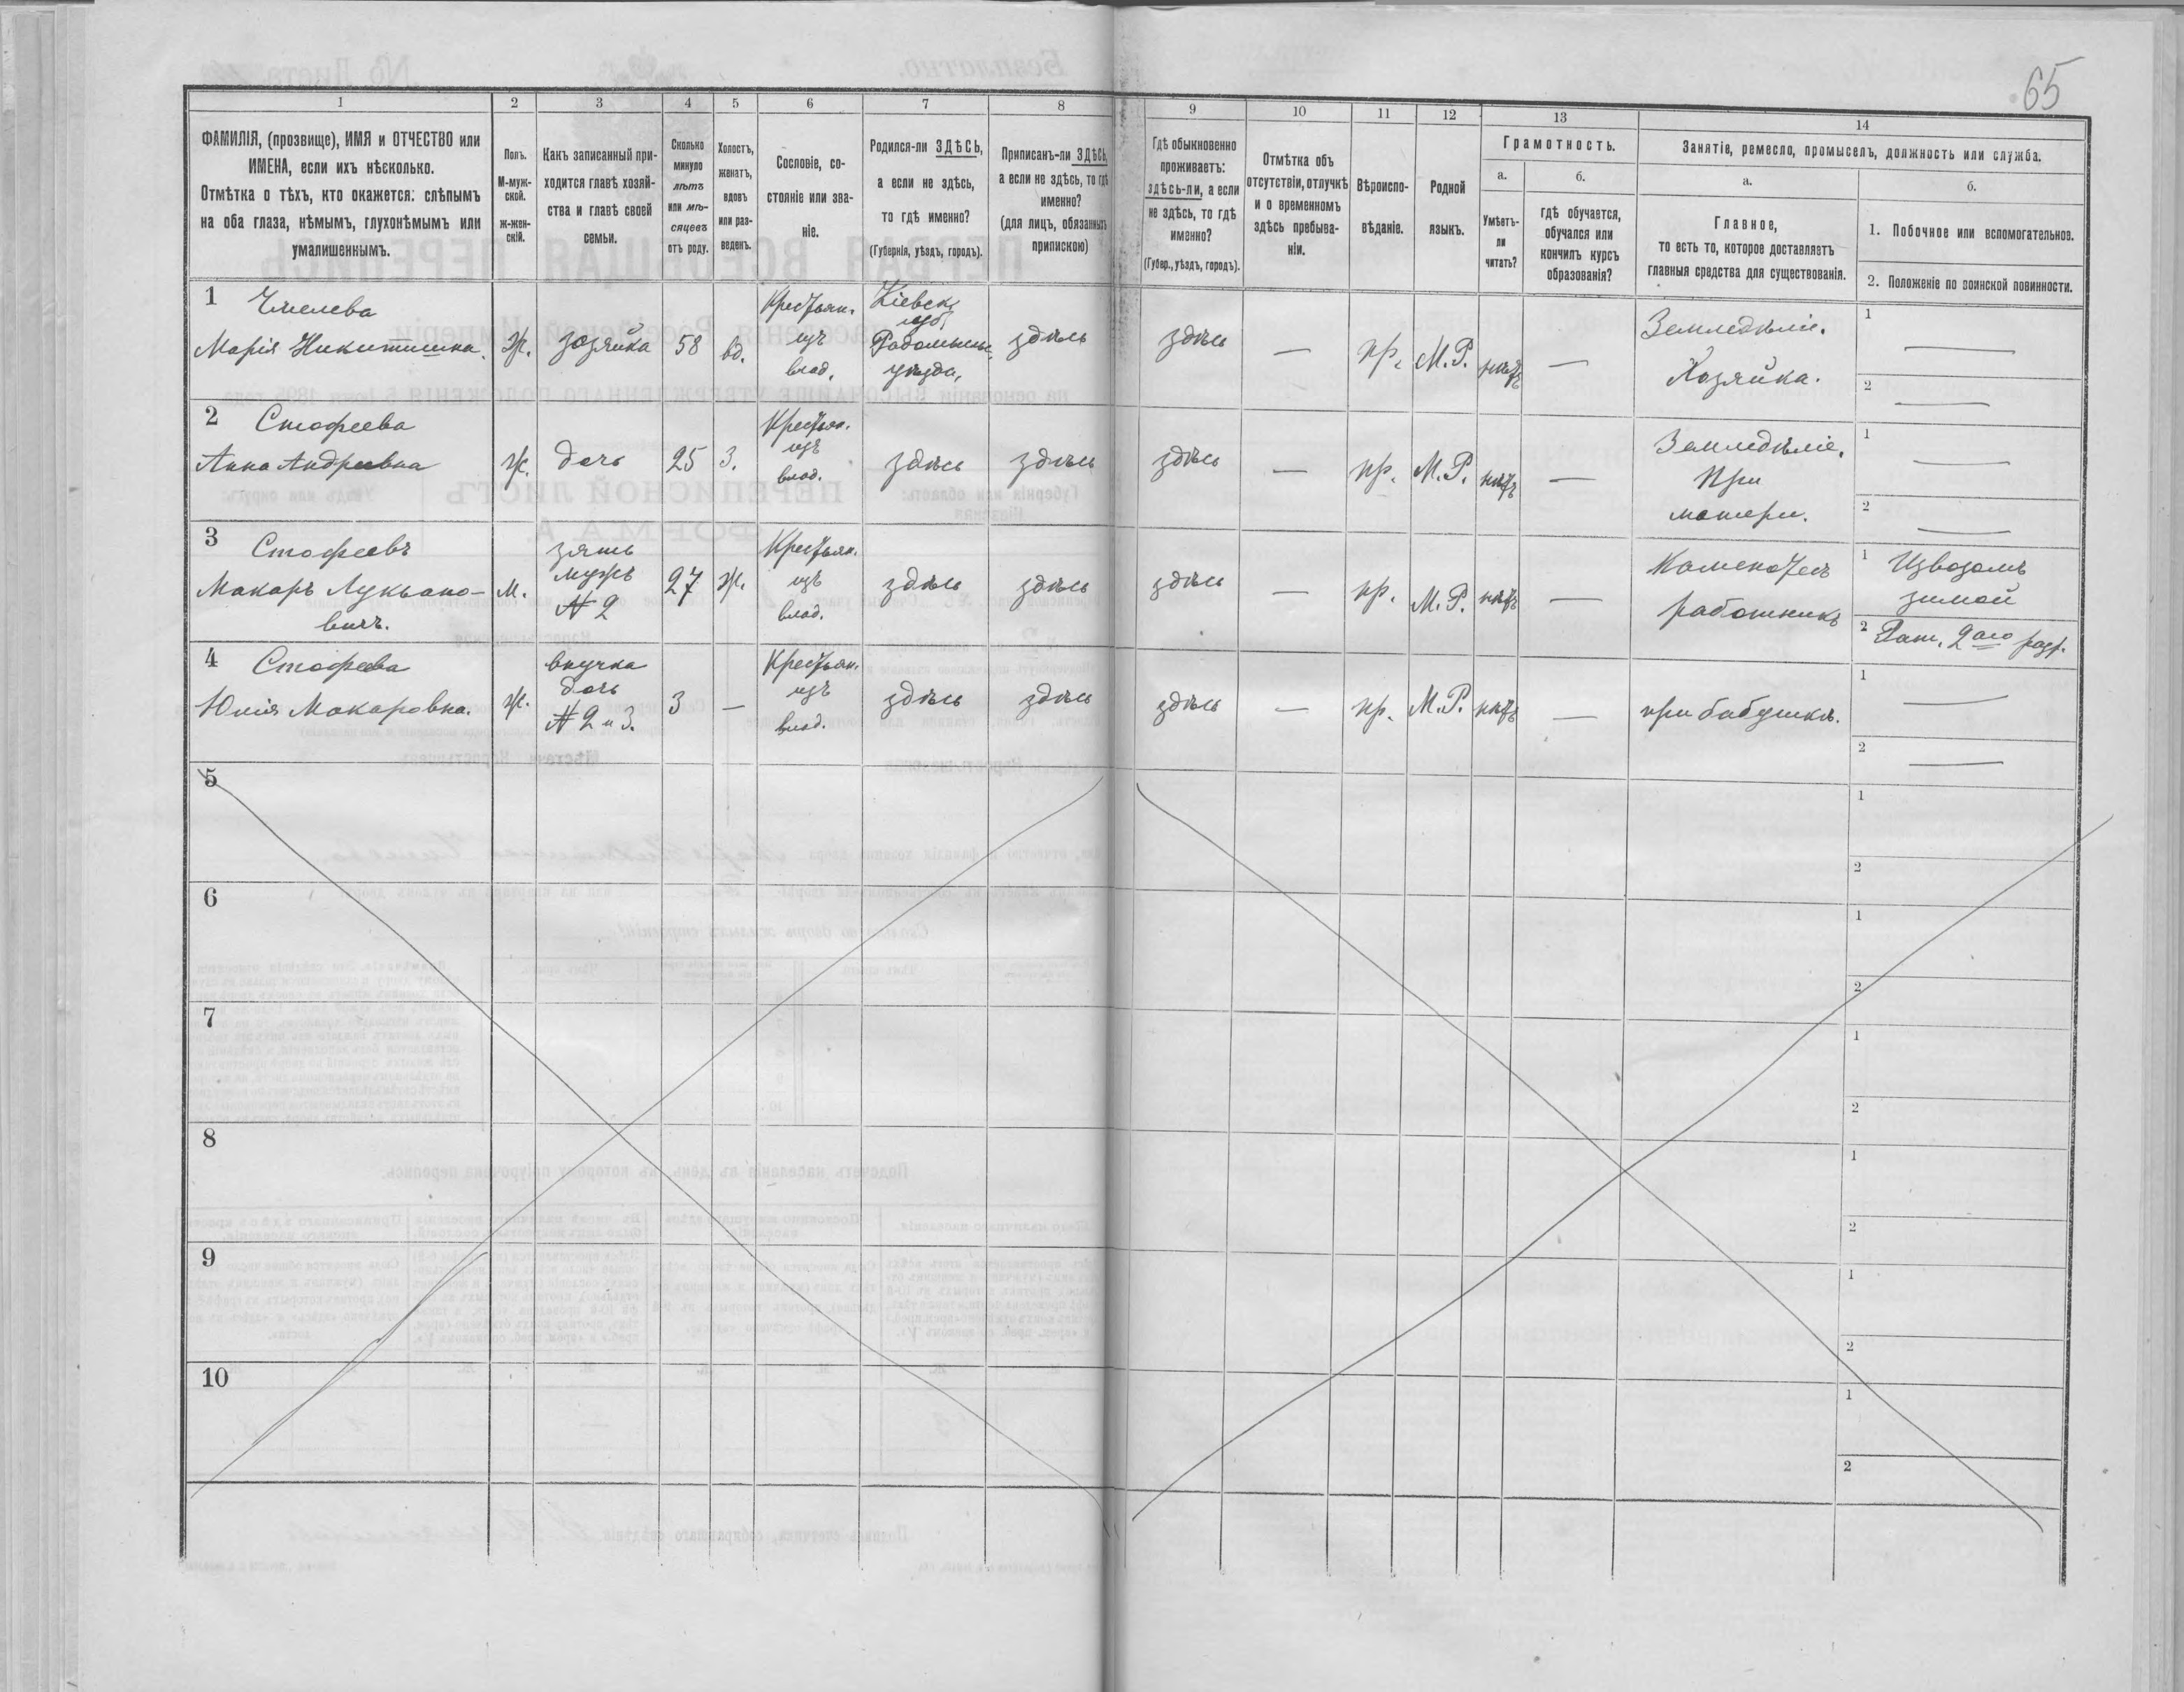 65
1 2 3 4 5 6 7 8 9 10 11 12 13 14
ФАМИЛІЯ, (прозвище), ИМЯ и ОТЧЕСТВО или
ИМЕНА, если ихъ нѣсколько.
Отмѣтка о тѣхъ, кто окажется: слѣпымъ
на оба глаза, нѣмымъ, глухонѣмымъ или
умалишеннымъ.
Полъ.
М-муж-
ской.
Ж-жен-
скій.
Какъ записанный при-
ходится главѣ хозяй-
ства и главѣ своей
семьи.
Сколько
минуло
лѣтъ
или мѣ-
сяцевъ
отъ роду.
Холостъ,
женатъ,
вдовъ
или раз-
веденъ.
Сословіе, со-
стояніе или зва-
ніе.
Родился-ли ЗДѢСЬ,
а если не здѣсь,
то гдѣ именно?
(Губернія, уѣздъ, городъ).
Приписанъ-ли ЗДѢСЬ,
а если не здѣсь, то гдѣ
именно?
(для лицъ, обязанныхъ
припискою)
Гдѣ обыкновенно
проживаетъ:
здѣсь-ли, а если
не здѣсь, то гдѣ
именно?
(Губер., уѣздъ, городъ).
Отмѣтка объ
отсутствіи, отлучкѣ
и о временномъ
здѣсь пребыва-
ніи.
Вѣроиспо-
вѣданіе.
Родной
языкъ.
Грамотность.
а.
Умѣетъ-
ли
читать?
б.
гдѣ обучается,
обучался или
кончилъ курсъ
образованія?
Занятіе, ремесло, промыселъ, должность или служба.
а.
Главное,
то есть то, которое доставляетъ
главныя средства для существованія.
б.
1. Побочное или вспомогательное.
2. Положеніе по воинской повинности.
1 Чмелева
Марія Никитишна.
Ж.
хозяйка
58
вд.
Крестьян.
изъ
влад.
Кіевск.
губ.
Радомысл.
уѣзда,
здѣсь
здѣсь
—
пр.
М.Р.
нѣтъ
—
Земледѣліе.
Хозяйка.
1 —
2 —
2 Стофеева
Анна Андреевна
Ж.
дочь
25
З.
Крестьян.
изъ
влад.
здѣсь
здѣсь
здѣсь
—
пр.
М.Р.
нѣтъ
—
Земледѣліе.
При
матери.
1 —
2 —
3 Стофеевъ
Макаръ Лукьяно-
вичъ.
М.
зять
мужъ
№ 2
27
Ж.
Крестьян.
изъ
влад.
здѣсь
здѣсь
здѣсь
—
пр.
М.Р.
нѣтъ
—
Каменотесъ
работникъ
1 Извозомъ
зимой
2 Рат. 2аго разр.
4 Стофеева
Юлія Макаровна.
Ж.
внучка
дочь
№ 2 и 3.
3
—
Крестьян.
изъ
влад.
здѣсь
здѣсь
здѣсь
—
пр.
М.Р.
нѣтъ
—
при бабушкѣ.
1 —
2 —
5
1
2
6
1
2
7
1
2
8
1
2
9
1
2
10
1
2